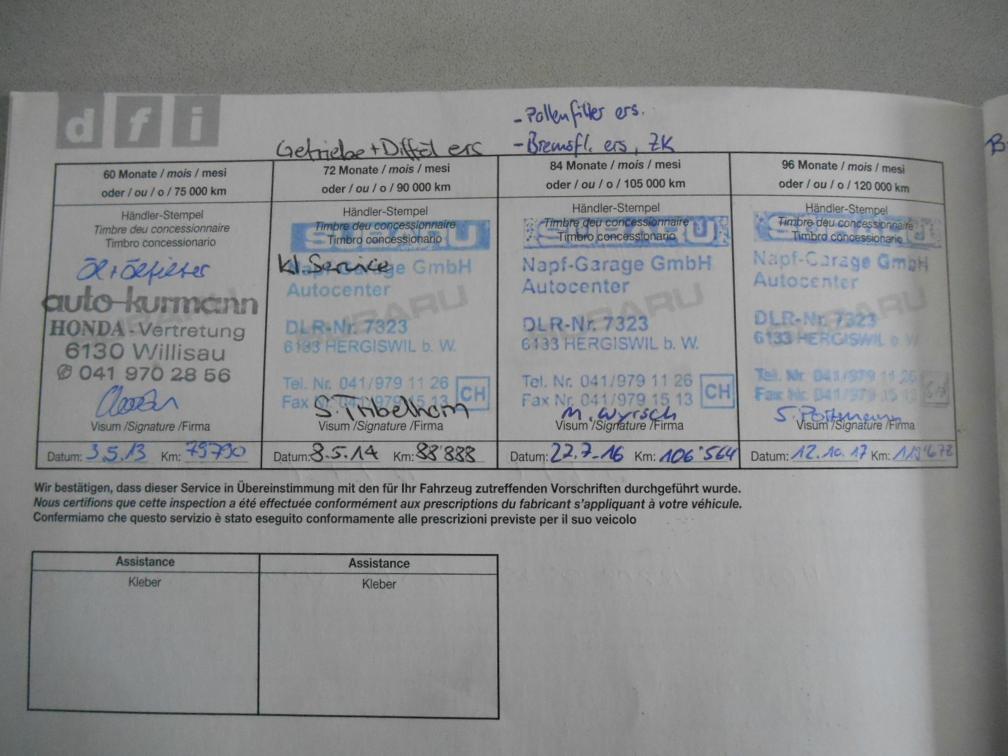 d f i
- Pollenfilter ers.
Getriebe + Difföl ers
- Bremsfl. ers, ZK
60 Monate / mois / mesi
oder / ou / o / 75 000 km
Händler-Stempel
Timbre deu concessionnaire
Timbro concessionario
Öl + Ölfilter
auto-kurmann
HONDA-Vertretung
6130 Willisau
✆ 041 970 28 56
Visum /Signature /Firma
Datum: 3.5.13 Km: 79790
72 Monate / mois / mesi
oder / ou / o / 90 000 km
Händler-Stempel
Timbre deu concessionnaire
SUBARU
Timbro concessionario
kl. Service
Napf-Garage GmbH
Autocenter
DLR-Nr. 7323
6133 HERGISWIL b. W.
Tel. Nr. 041/979 11 26
Fax Nr. 041/979 15 13 CH
S. Tribelhorn
Visum /Signature /Firma
Datum: 8.5.14 Km: 88'888
84 Monate / mois / mesi
oder / ou / o / 105 000 km
Händler-Stempel
Timbre deu concessionnaire
SUBARU
Timbro concessionario
Napf-Garage GmbH
Autocenter
DLR-Nr. 7323
6133 HERGISWIL b. W.
Tel. Nr. 041/979 11 26
Fax Nr. 041/979 15 13 CH
M. Wyrsch
Visum /Signature /Firma
Datum: 22.7-16 Km: 106'564
96 Monate / mois / mesi
oder / ou / o / 120 000 km
Händler-Stempel
Timbre deu concessionnaire
SUBARU
Timbro concessionario
Napf-Garage GmbH
Autocenter
DLR-Nr. 7323
6133 HERGISWIL b. W
Tel. Nr. 041/979 11 26
Fax Nr. 041/979 15 13
S. Portmann
Visum /Signature /Firma
Datum: 12.10.17 Km:
Wir bestätigen, dass dieser Service in Übereinstimmung mit den für Ihr Fahrzeug zutreffenden Vorschriften durchgeführt wurde.
Nous certifions que cette inspection a été effectuée conformément aux prescriptions du fabricant s'appliquant à votre véhicule.
Confermiamo che questo servizio è stato eseguito conformamente alle prescrizioni previste per il suo veicolo
Assistance
Kleber
Assistance
Kleber